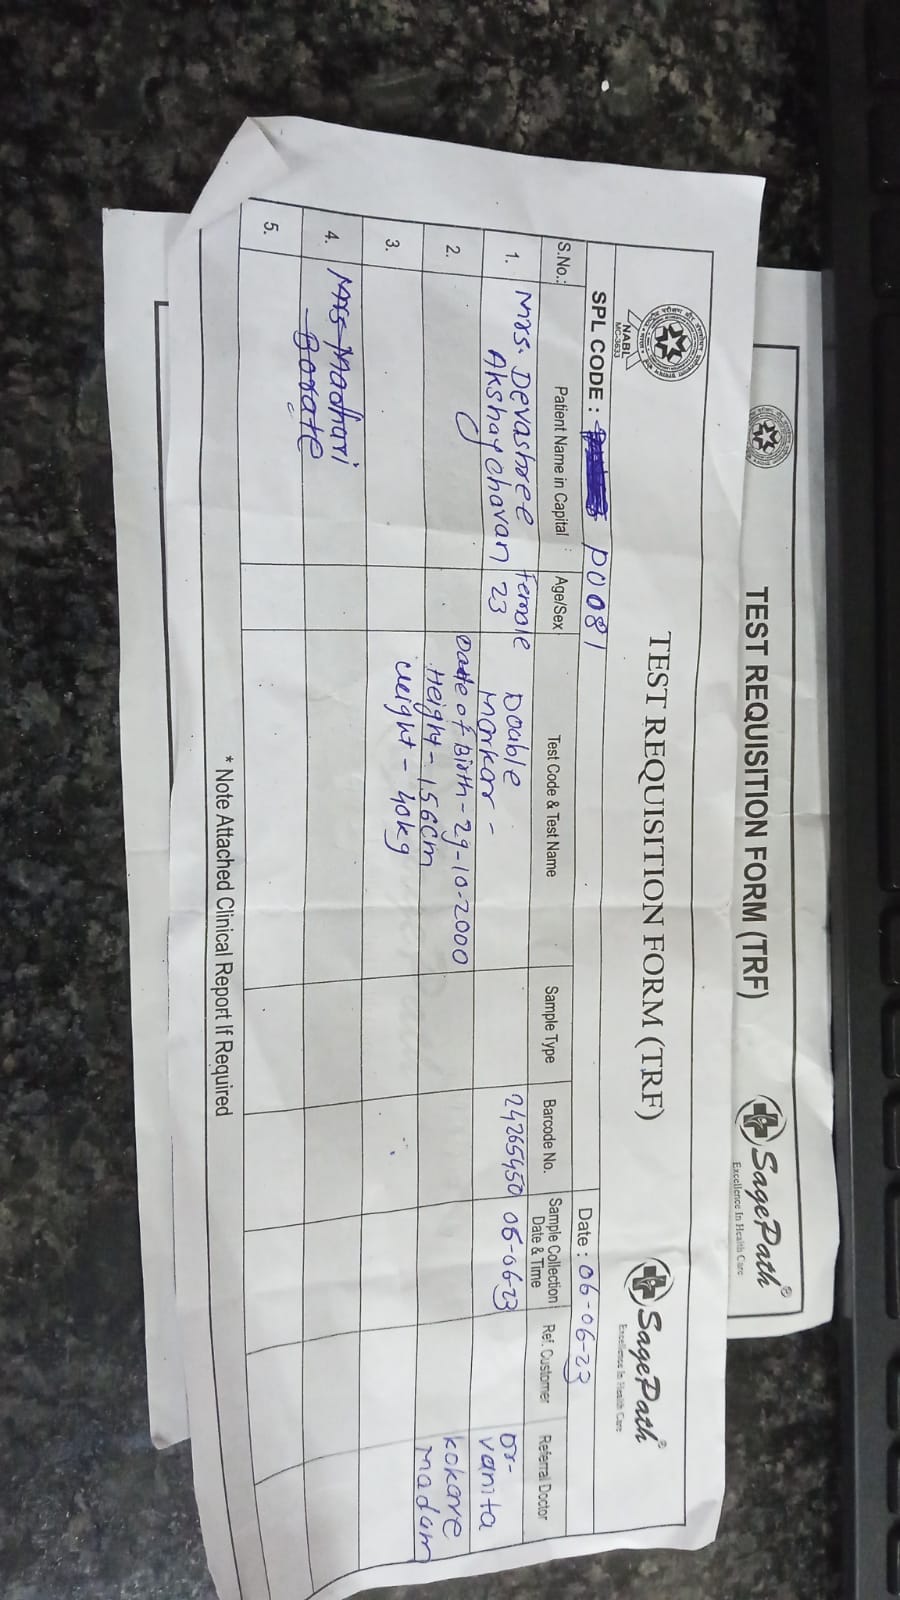 TEST REQUISITION FORM (TRF)
SagePath®
Excellence In Health Care
NABL
MC-3633
TEST REQUISITION FORM (TRF)
SagePath®
Excellence In Health Care
SPL CODE : P0081
Date : 06-06-23
S.No.: Patient Name in Capital : Age/Sex Test Code & Test Name Sample Type Barcode No. Sample Collection Date & Time Ref. Customer Referral Doctor
1. Mrs. Devashree Female Double 24265450 06-06-23 Dr-
Akshay chavan 23 Markar - vanita
2. Date of Birth - 29-10-2000 kokare
Height - 156cm Madam
3. weight - 40kg
4. Mrs Madhari
Borate
5.
* Note Attached Clinical Report If Required